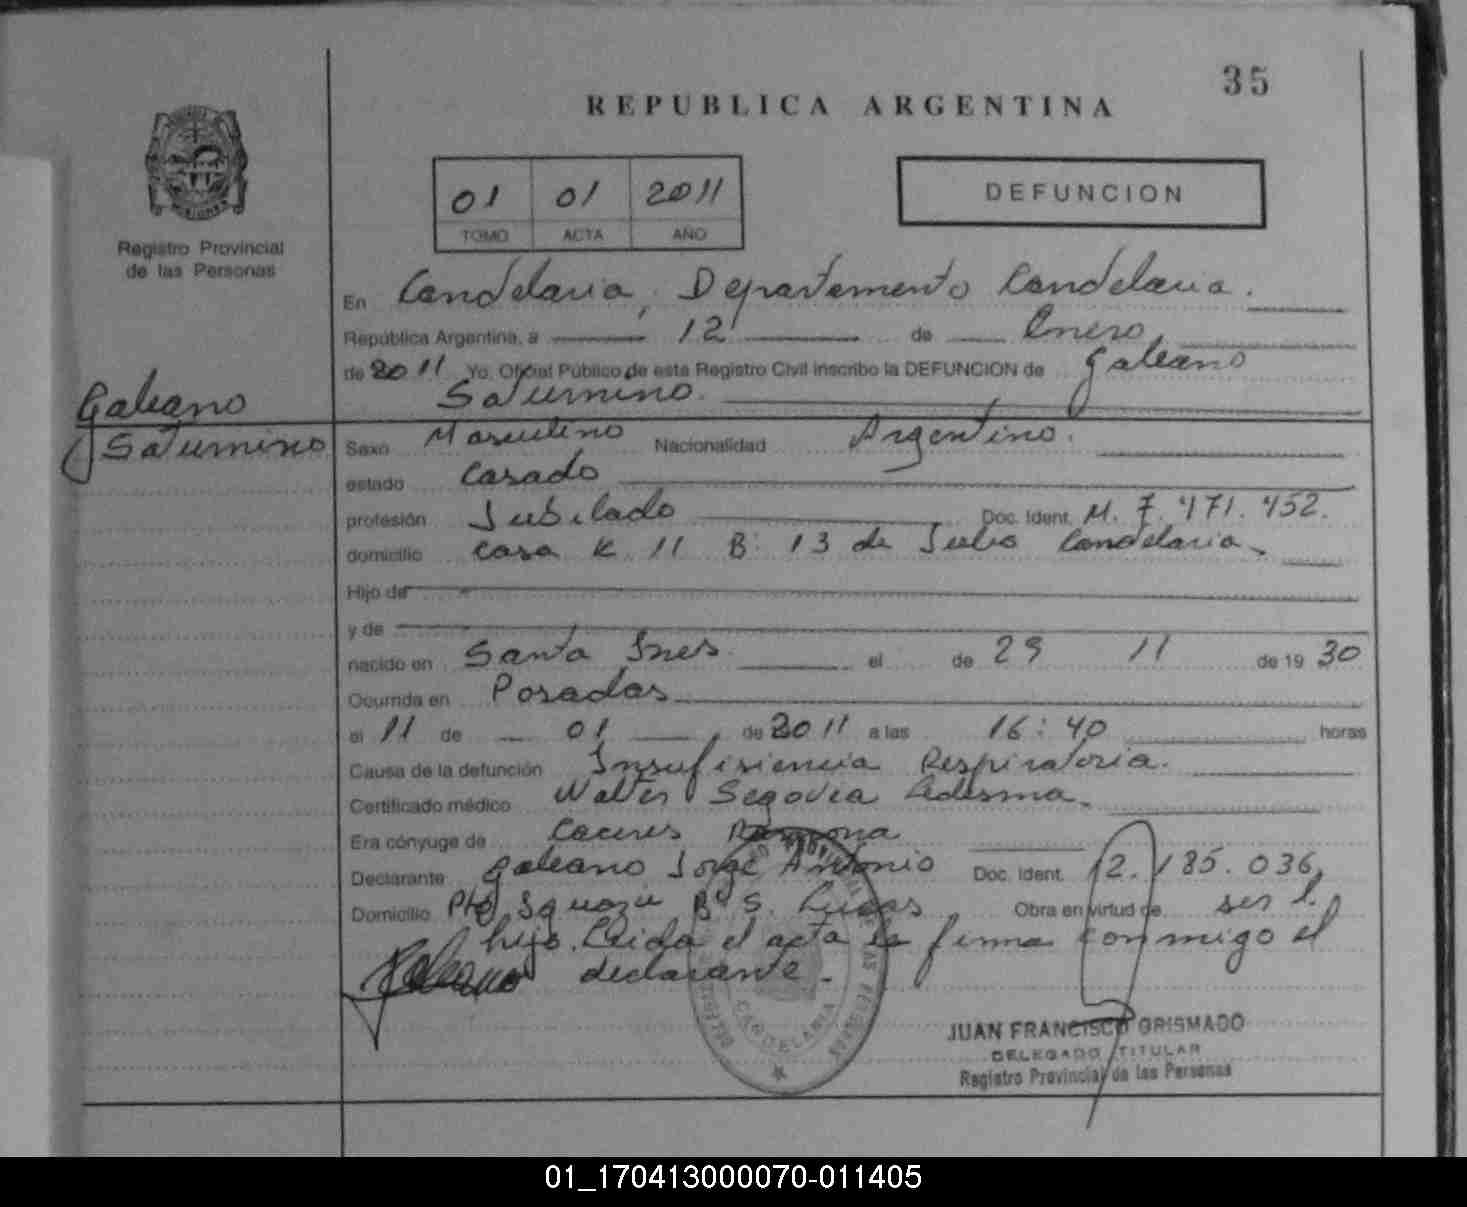 35
REPUBLICA ARGENTINA
01 01 2011
TOMO ACTA AÑO
DEFUNCION
Registro Provincial
de las Personas
En Candelaria, Departamento Candelaria.
República Argentina, a 12 de Enero
de 2011 Yo, Oficial Público de este Registro Civil inscribo la DEFUNCION de Galeano
Saturnino.
Galeano
Saturnino
Sexo Masculino Nacionalidad Argentino.
estado Casado
profesión Jubilado Doc. Ident. M. 7.471.452.
domicilio Casa K 11 B: 13 de Julio Candelaria
Hijo de
y de
nacido en Santa Ines el de 29 11 de 19 30
Ocurrida en Posadas
el 11 de 01 de 2011 a las 16:40 horas
Causa de la defunción Insufisiencia Respiratoria.
Certificado médico Walter Segovia
Era cónyuge de Caceres Ramona
Declarante Galeano Jorge Antonio Doc. Ident. 12.185.036
Domicilio Pto Iguazu Bº S. Lucas Obra en virtud de ser
hijo. Leida el acta la firma conmigo el
declarante.
CANDELARIA
JUAN FRANCISCO GRISMADO
DELEGADO TITULAR
Registro Provincial de las Personas
01_170413000070-011405